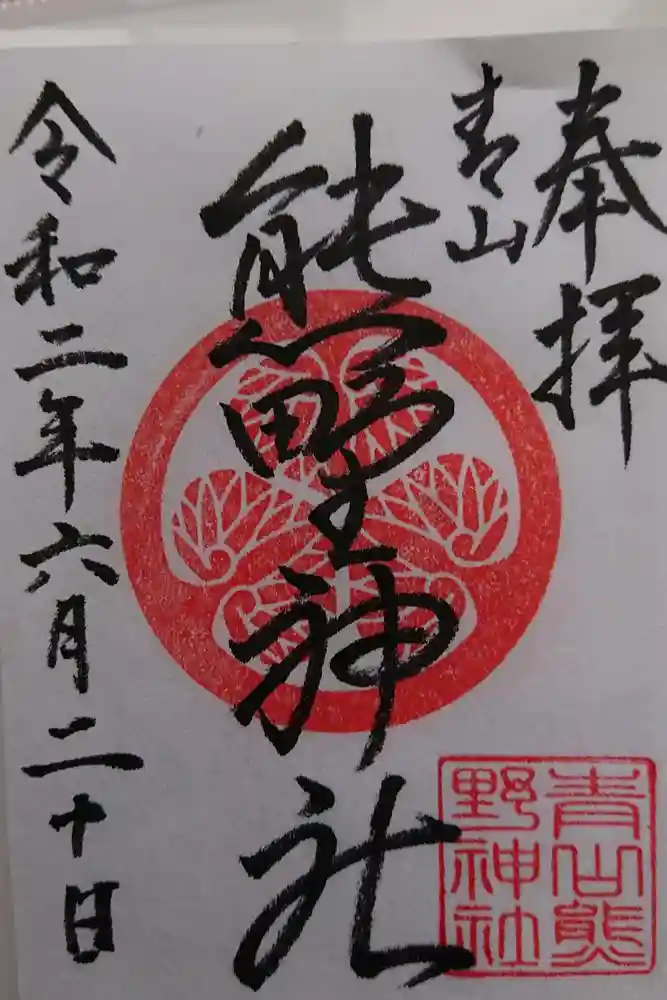 奉拝
青山
熊野神社
令和二年六月二十日
青山熊
野神社